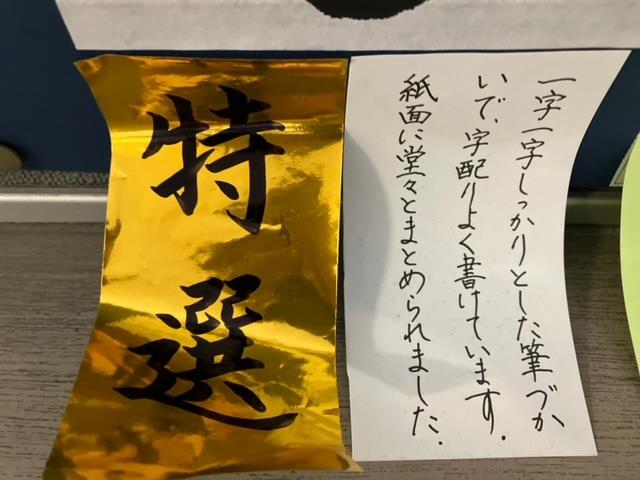 特選
一字一字しっかりとした筆づか
いで、字配りよく書けています.
紙面に堂々とまとめられました.